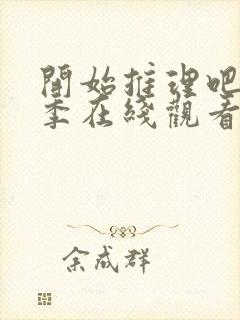 開始推理吧
季在綫觀看
余成群